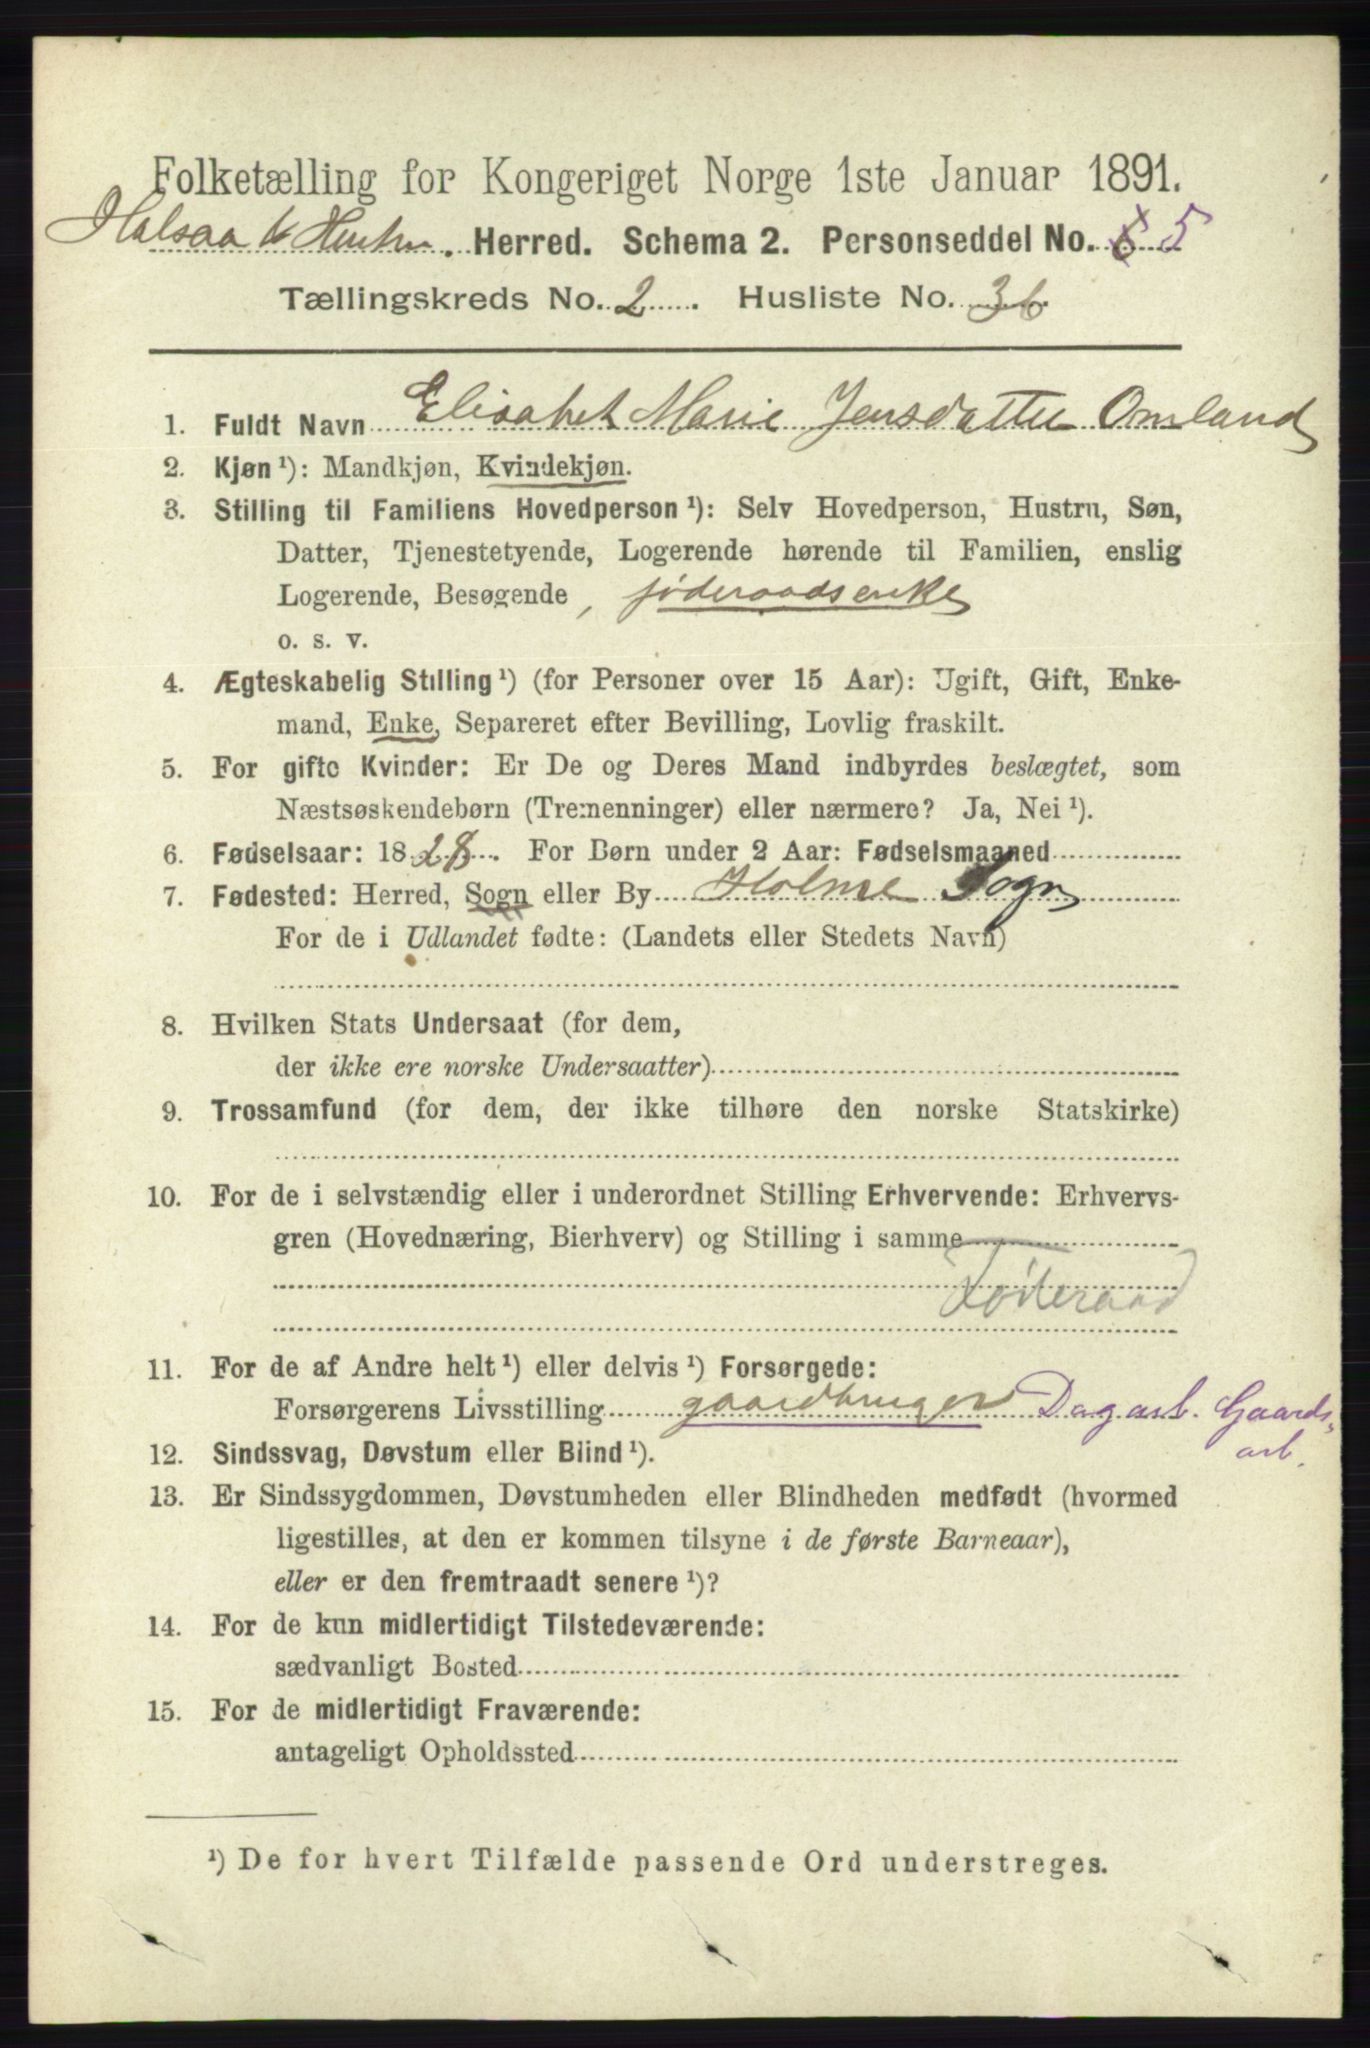 Folketælling for Kongeriget Norge 1ste Januar 1891.
Halsaa & Hark. Herred. Schema 2. Personseddel No. 6 5
Tællingskreds No. 2. Husliste No. 36.
1. Fuldt Navn Elisabet Marie Jensdatter Omland
2. Kjøn ¹): Mandkjøn, Kvindekjøn.
3. Stilling til Familiens Hovedperson ¹): Selv Hovedperson, Hustru, Søn,
Datter, Tjenestetyende, Logerende hørende til Familien, enslig
Logerende, Besøgende, føderaadsenke
o. s. v.
4. Ægteskabelig Stilling ¹) (for Personer over 15 Aar): Ugift, Gift, Enke-
mand, Enke, Separeret efter Bevilling, Lovlig fraskilt.
5. For gifte Kvinder: Er De og Deres Mand indbyrdes beslægtet, som
Næstsøskendebørn (Tremenninger) eller nærmere? Ja, Nei ¹).
6. Fødselsaar: 1828. For Børn under 2 Aar: Fødselsmaaned
7. Fødested: Herred, Sogn eller By Holme Sogn
For de i Udlandet fødte: (Landets eller Stedets Navn)
8. Hvilken Stats Undersaat (for dem,
der ikke ere norske Undersaatter)
9. Trossamfund (for dem, der ikke tilhøre den norske Statskirke)
10. For de i selvstændig eller i underordnet Stilling Erhvervende: Erhvervs-
gren (Hovednæring, Bierhverv) og Stilling i samme
Føderaad
11. For de af Andre helt ¹) eller delvis ¹) Forsørgede:
Forsørgerens Livsstilling gaardbruger Dagarb. Gaards-
arb.
12. Sindssvag, Døvstum eller Blind ¹).
13. Er Sindssygdommen, Døvstumheden eller Blindheden medfødt (hvormed
ligestilles, at den er kommen tilsyne i de første Barneaar),
eller er den fremtraadt senere ¹)?
14. For de kun midlertidigt Tilstedeværende:
sædvanligt Bosted
15. For de midlertidigt Fraværende:
antageligt Opholdssted
¹) De for hvert Tilfælde passende Ord understreges.